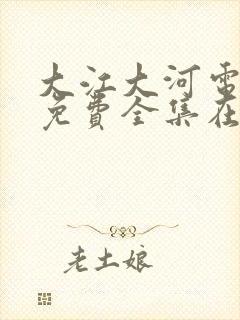 大江大河电
免费全集在
老土娘